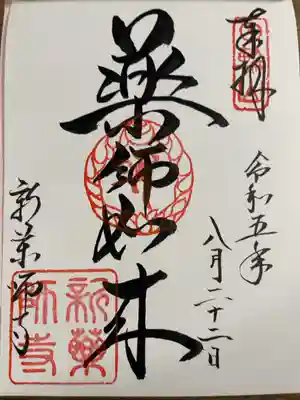 奉拝
令和五年
八月二十二日
薬師如来
新薬師寺
新薬
師寺